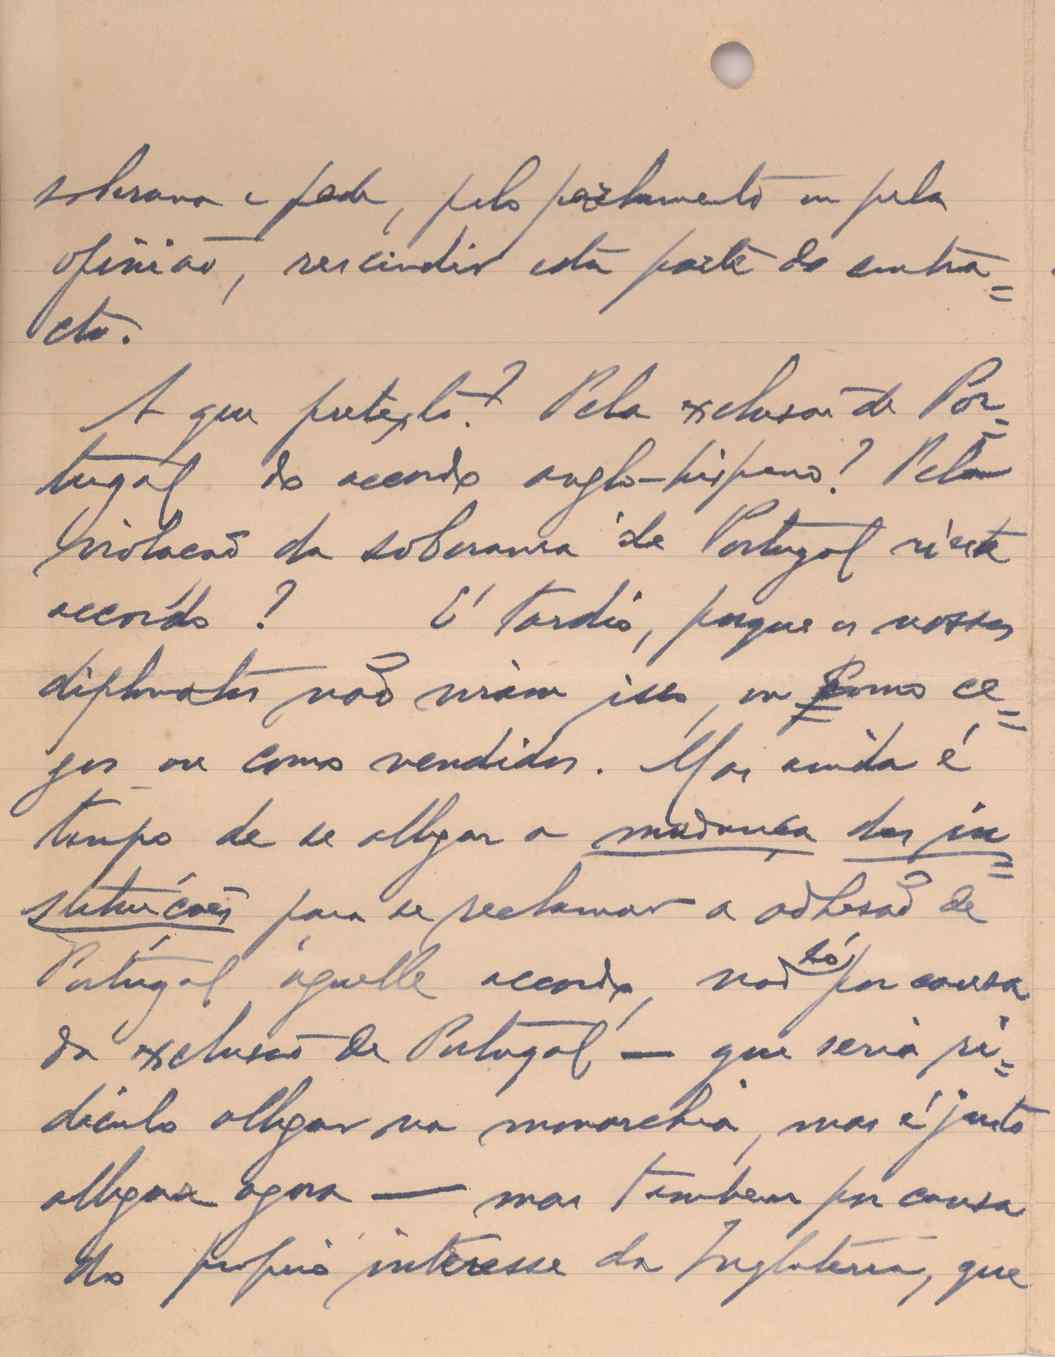 soberana e pode, pelo parlamento ou pela
opinião, rescindir esta parte do contra=
cto.
A que pretexto? Pela exclusão de Por=
tugal do accordo anglo-hispano? Pela
violação da soberania de Portugal n'este
accordo? É tardio, porque os nossos
diplomatas não viram isso, ou como ce=
gos ou como vendidos. Mas ainda é
tempo de se allegar a mudança das in=
stituições para se reclamar a adhesão de
Portugal áquelle accordo, não só por causa
da exclusão de Portugal — que seria ri=
diculo allegar na monarchia, mas é justo
allegar agora — mas tambem por causa
do proprio interesse da Inglaterra, que